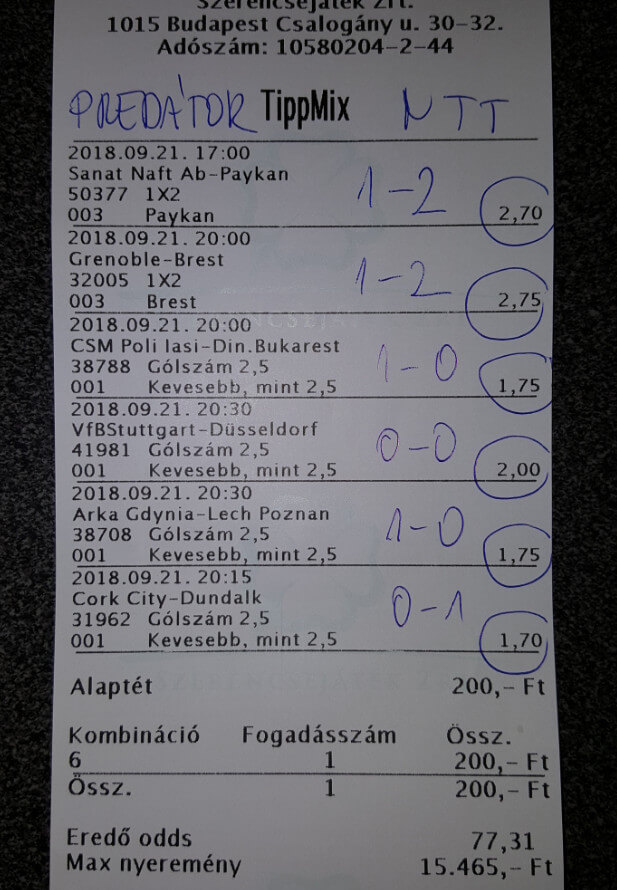 Szerencsejáték Zrt.
1015 Budapest Csalogány u. 30-32.
Adószám: 10580204-2-44
PREDÁTOR TippMix NTT
2018.09.21. 17:00
Sanat Naft Ab-Paykan 1-2
50377 1X2
003 Paykan 2,70
2018.09.21. 20:00
Grenoble-Brest 1-2
32005 1X2
003 Brest 2,75
2018.09.21. 20:00
CSM Poli Iasi-Din.Bukarest 1-0
38788 Gólszám 2,5
001 Kevesebb, mint 2,5 1,75
2018.09.21. 20:30
VfBStuttgart-Düsseldorf 0-0
41981 Gólszám 2,5
001 Kevesebb, mint 2,5 2,00
2018.09.21. 20:30
Arka Gdynia-Lech Poznan 1-0
38708 Gólszám 2,5
001 Kevesebb, mint 2,5 1,75
2018.09.21. 20:15
Cork City-Dundalk 0-1
31962 Gólszám 2,5
001 Kevesebb, mint 2,5 1,70
Alaptét 200,- Ft
Kombináció Fogadásszám Össz.
6 1 200,- Ft
Össz. 1 200,- Ft
Eredő odds 77,31
Max nyeremény 15.465,- Ft